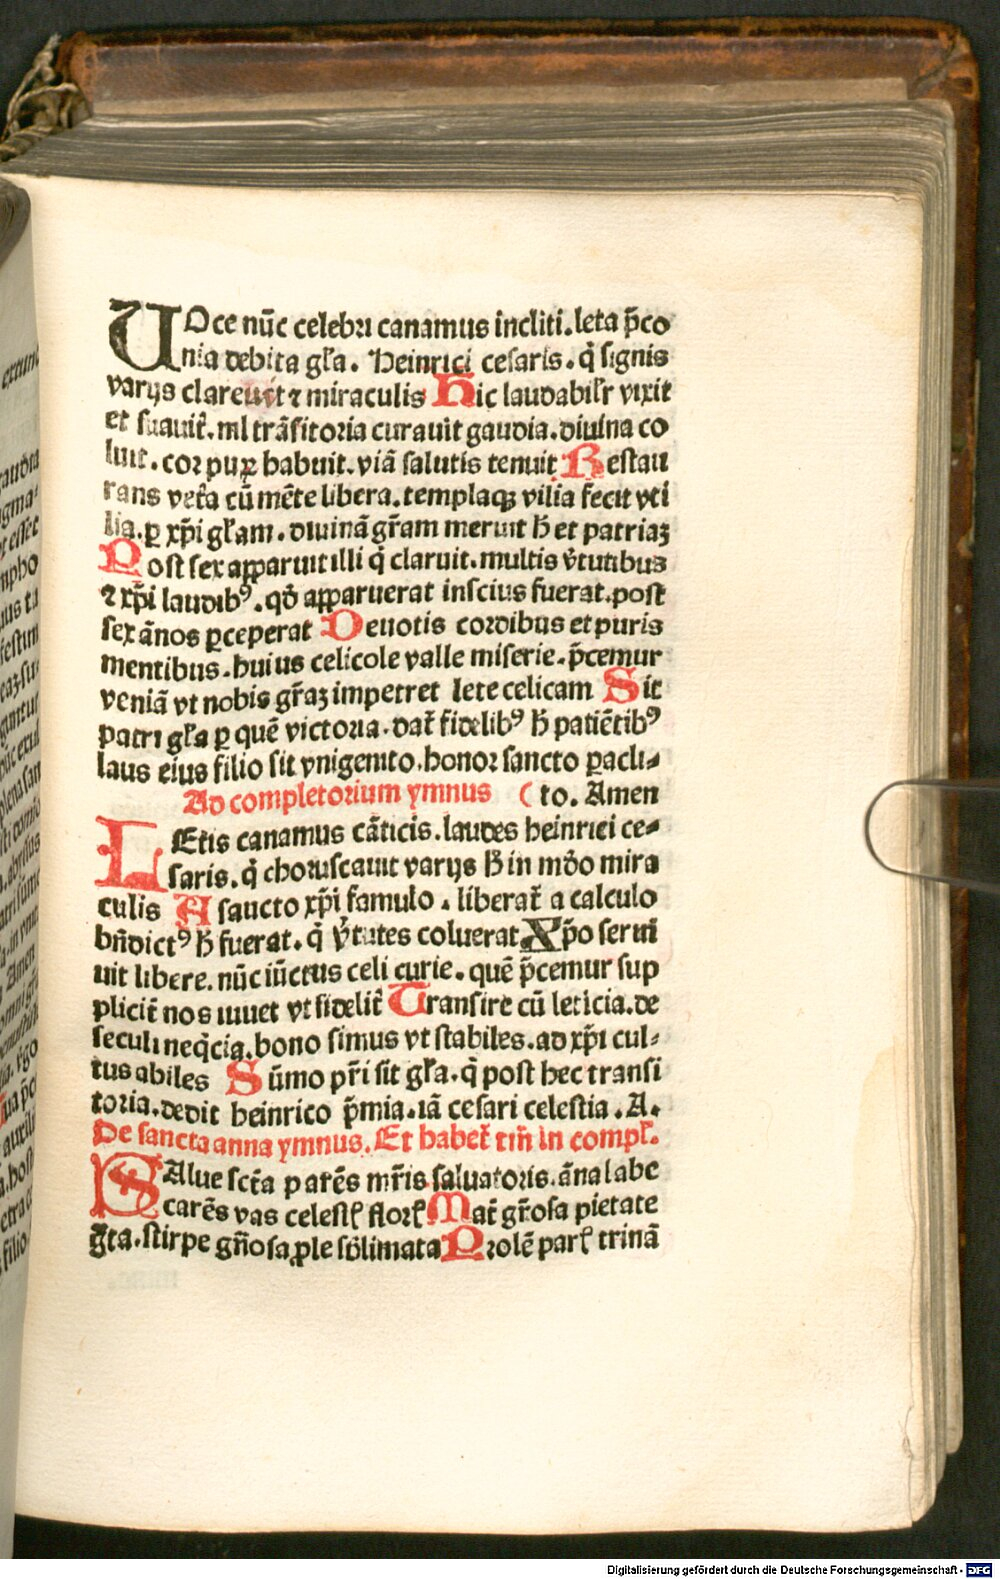 VOce nūc celebri canamus incliti. leta p̄co
nia debita gl̄a. Heinrici cesaris. q̄ signis
varijs claret et miraculis Hic laudabil̄r vixit
et suauit̄. ml̄ trāsitoria curauit gaudia. diuina co
luit. cor puꝝ habuit. viā salutis tenuit Restau
rans vet̄a cū mēte libera. templaqꝫ vilia fecit vti
lia. ꝑ xp̄i gl̄am. diuinā gr̄am meruit h̄ et patriaꝫ
Post sex apparuit illi q̄ claruit. multis v̄tutibus
⁊ xp̄i laudibꝰ. qd̄ apparuerat inscius fuerat. post
sex ānos ꝑceperat Deuotis cordibus et puris
mentibus. huius celicole valle miserie. p̄cemur
veniā vt nobis gr̄aꝫ impetret lete celicam Sit
patri gl̄a ꝑ quē victoria. dat̄ fidelibꝰ h̄ patiētibꝰ
laus eius filio sit vnigenito. honor sancto ꝑacli-
Ad completorium ymnus (to. Amen
LEtis canamus cāticis. laudes heinrici ce-
saris. q̄ choruscauit varijs h̄ in mōo mira
culis A sancto xp̄i famulo. liberat̄ a calculo
bn̄dictꝰ h̄ fuerat. q̄ v̄tutes coluerat Xp̄o serui
uit libere. nūc iūctus celi curie. quē p̄cemur sup
plicit̄ nos iuuet vt fidelit̄ Transire cū leticia. de
seculi neq̄cia. bono simus vt stabiles. ad xp̄i cul-
tus abiles Sūmo pr̄i sit gl̄a. q̄ post hec transi
toria. dedit heinrico p̄mia. iā cesari celestia. A.
De sancta anna ymnus. Et habet̄ tm̄ in compl̄.
SAlue sct̄a parēs mr̄is saluatoris. āna labe
carēs vas celestꝭ florꝭ Mat̄ gr̄osa pietate
gͣta. stirpe gn̄osa ꝓle sb̄limata Prolē parꝭ trinā